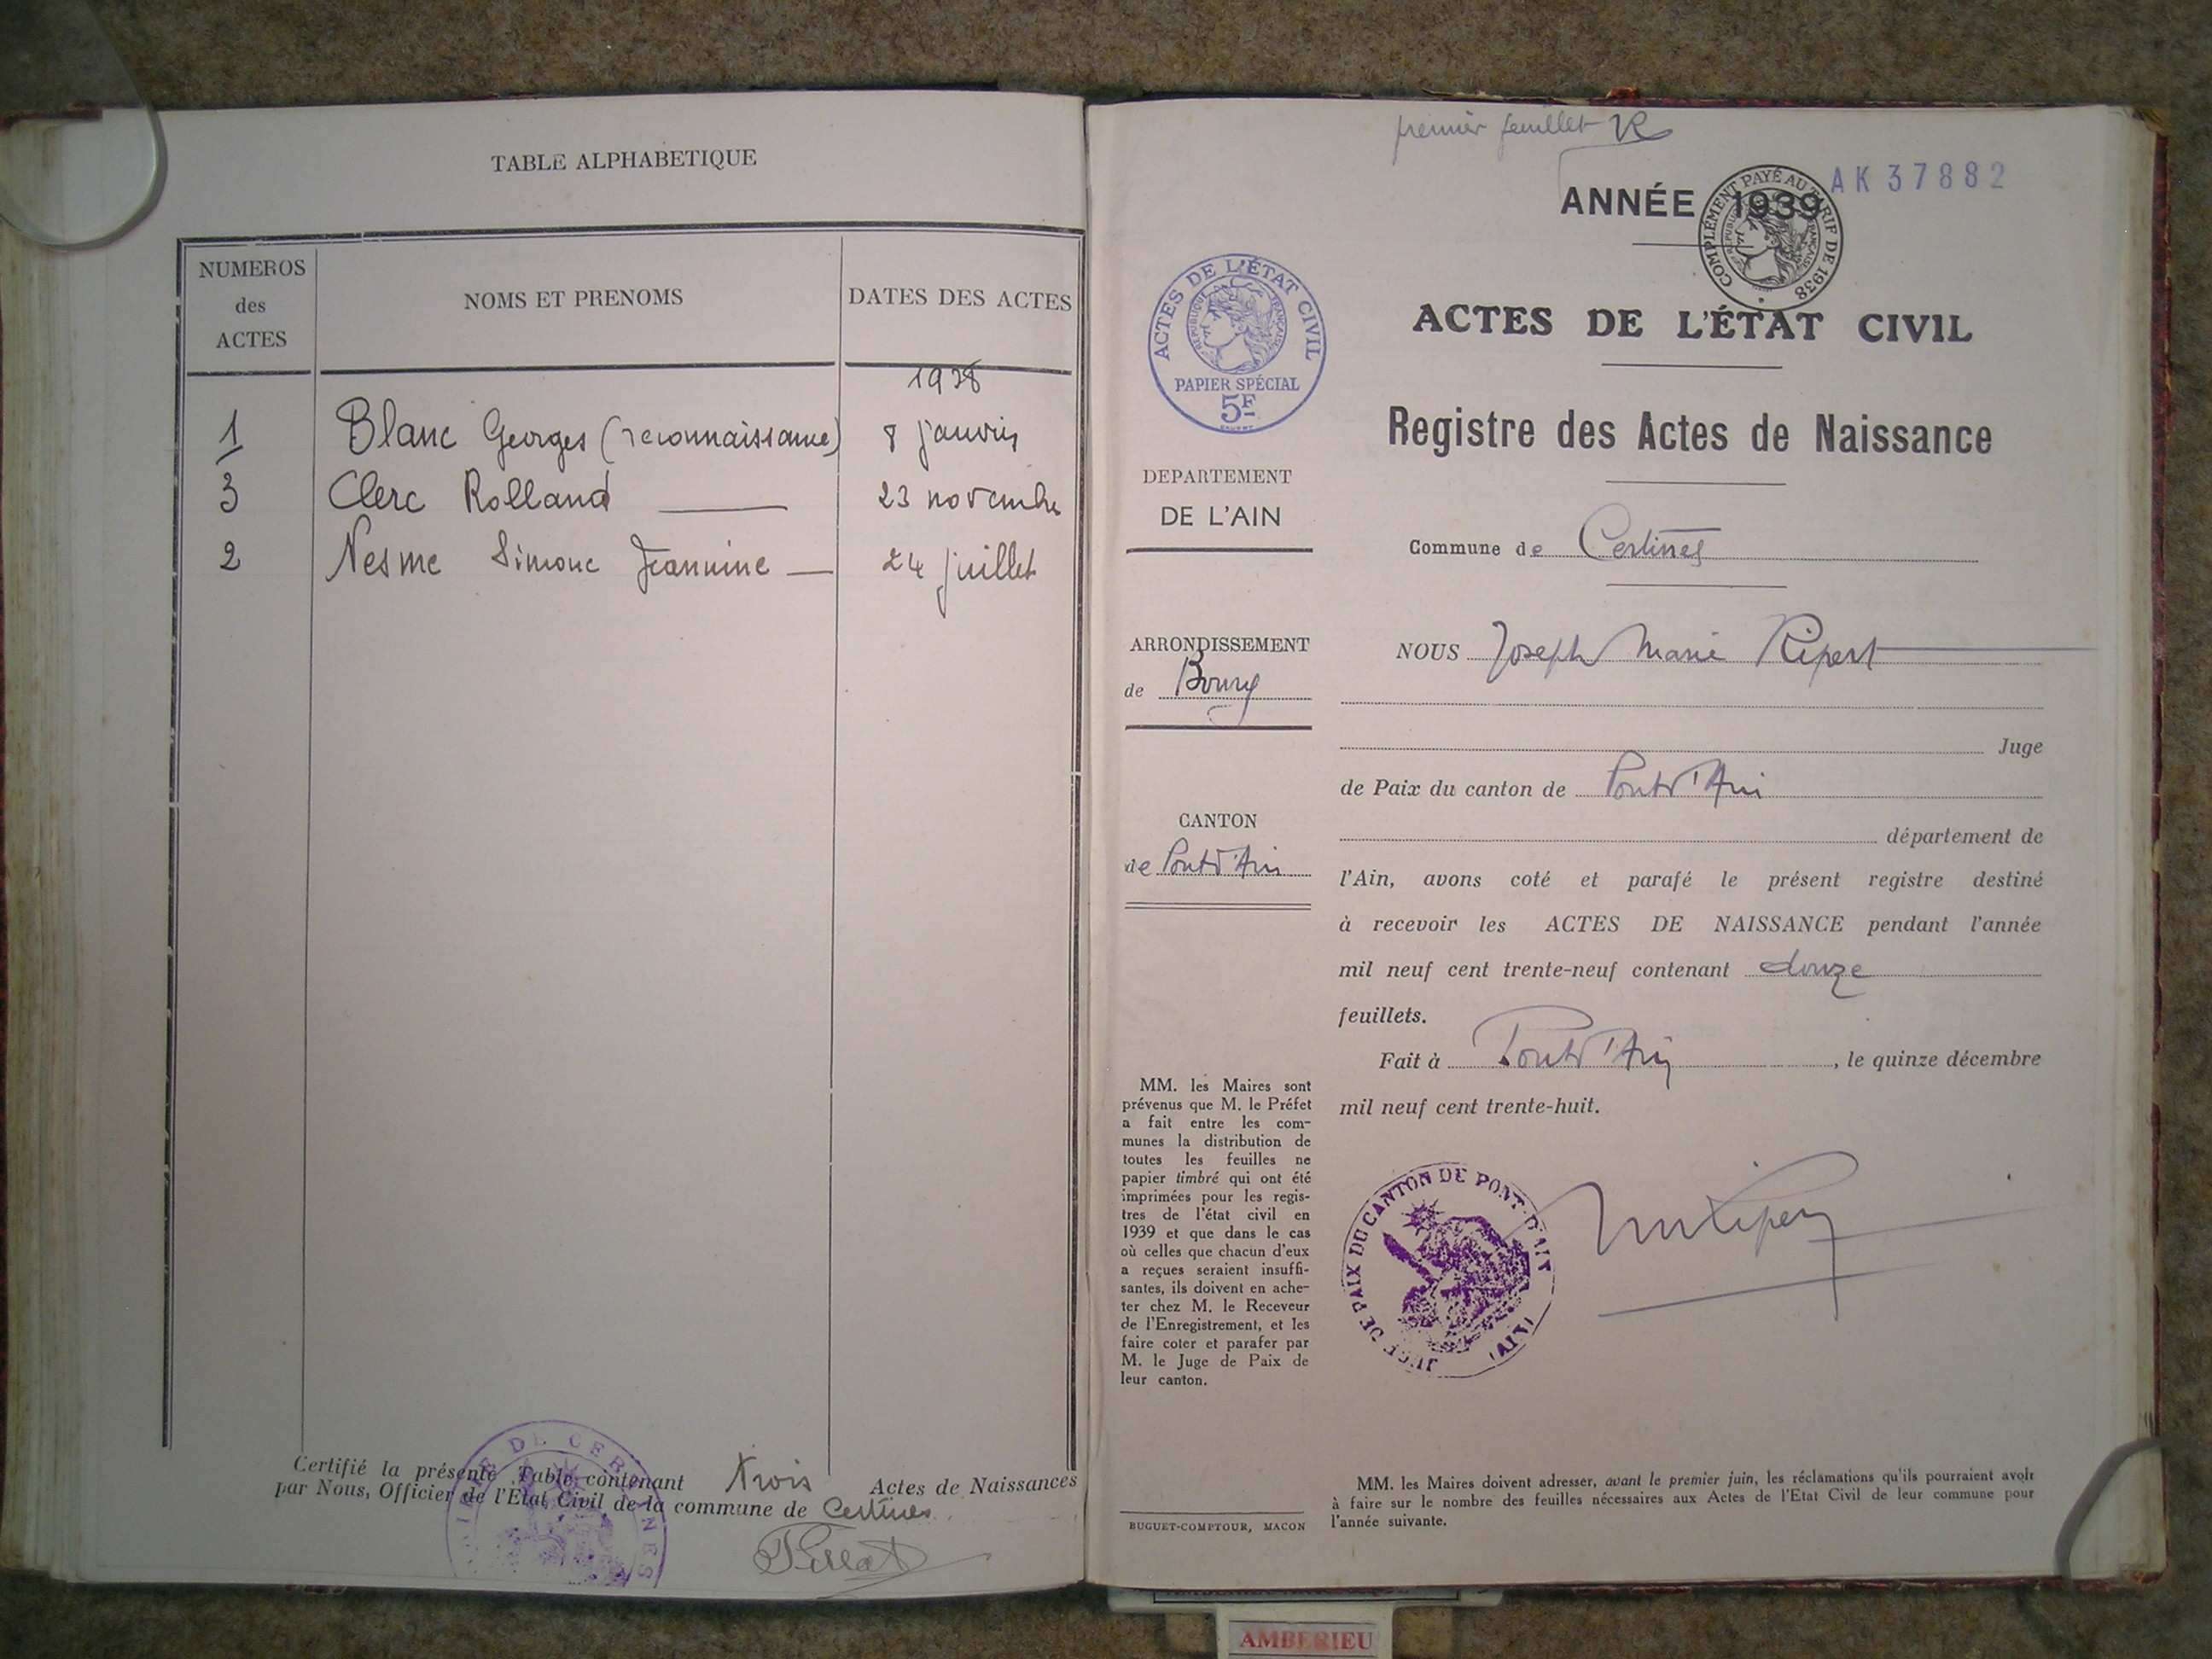 TABLE ALPHABETIQUE
NUMEROS
des
ACTES
NOMS ET PRENOMS
DATES DES ACTES
1938
1 Blanc Georges (reconnaissance) 8 janvier
3 Clerc Rolland 23 novembre
2 Nesme Simone Jeannine 24 juillet
Certifié la présente Table contenant trois Actes de Naissances
par Nous, Officier de l'Etat Civil de la commune de Certines
MAIRIE DE CERTINES
premier feuillet
ANNÉE 1939
AK 37882
COMPLÉMENT PAYÉ AU TARIF DE 1938
RÉPUBLIQUE FRANÇAISE
ACTES DE L'ÉTAT CIVIL
RÉPUBLIQUE FRANÇAISE
PAPIER SPÉCIAL
5F
ACTES DE L'ÉTAT CIVIL
Registre des Actes de Naissance
DEPARTEMENT
DE L'AIN
Commune de Certines
ARRONDISSEMENT
de Bourg
CANTON
de Pont d'Ain
NOUS Joseph Marie Ripert
Juge
de Paix du canton de Pont d'Ain
département de
l'Ain, avons coté et parafé le présent registre destiné
à recevoir les ACTES DE NAISSANCE pendant l'année
mil neuf cent trente-neuf contenant douze
feuillets.
Fait à Pont d'Ain, le quinze décembre
mil neuf cent trente-huit.
MM. les Maires sont
prévenus que M. le Préfet
a fait entre les com-
munes la distribution de
toutes les feuilles ne
papier timbré qui ont été
imprimées pour les regis-
tres de l'état civil en
1939 et que dans le cas
où celles que chacun d'eux
a reçues seraient insuffi-
santes, ils doivent en ache-
ter chez M. le Receveur
de l'Enregistrement, et les
faire coter et parafer par
M. le Juge de Paix de
leur canton.
JUGE DE PAIX DU CANTON DE PONT-D'AIN
(AIN)
BUGUET-COMPTOUR, MACON
MM. les Maires doivent adresser, avant le premier juin, les réclamations qu'ils pourraient avoir
à faire sur le nombre des feuilles nécessaires aux Actes de l'Etat Civil de leur commune pour
l'année suivante.
AMBERIEU